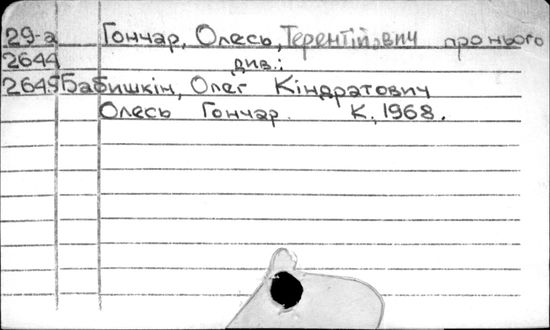 29-а Гончар, Олесь, Терентійович про нього
2644 див.:
2645 Бабишкін, Олег Кіндратович
Олесь Гончар. К., 1968.